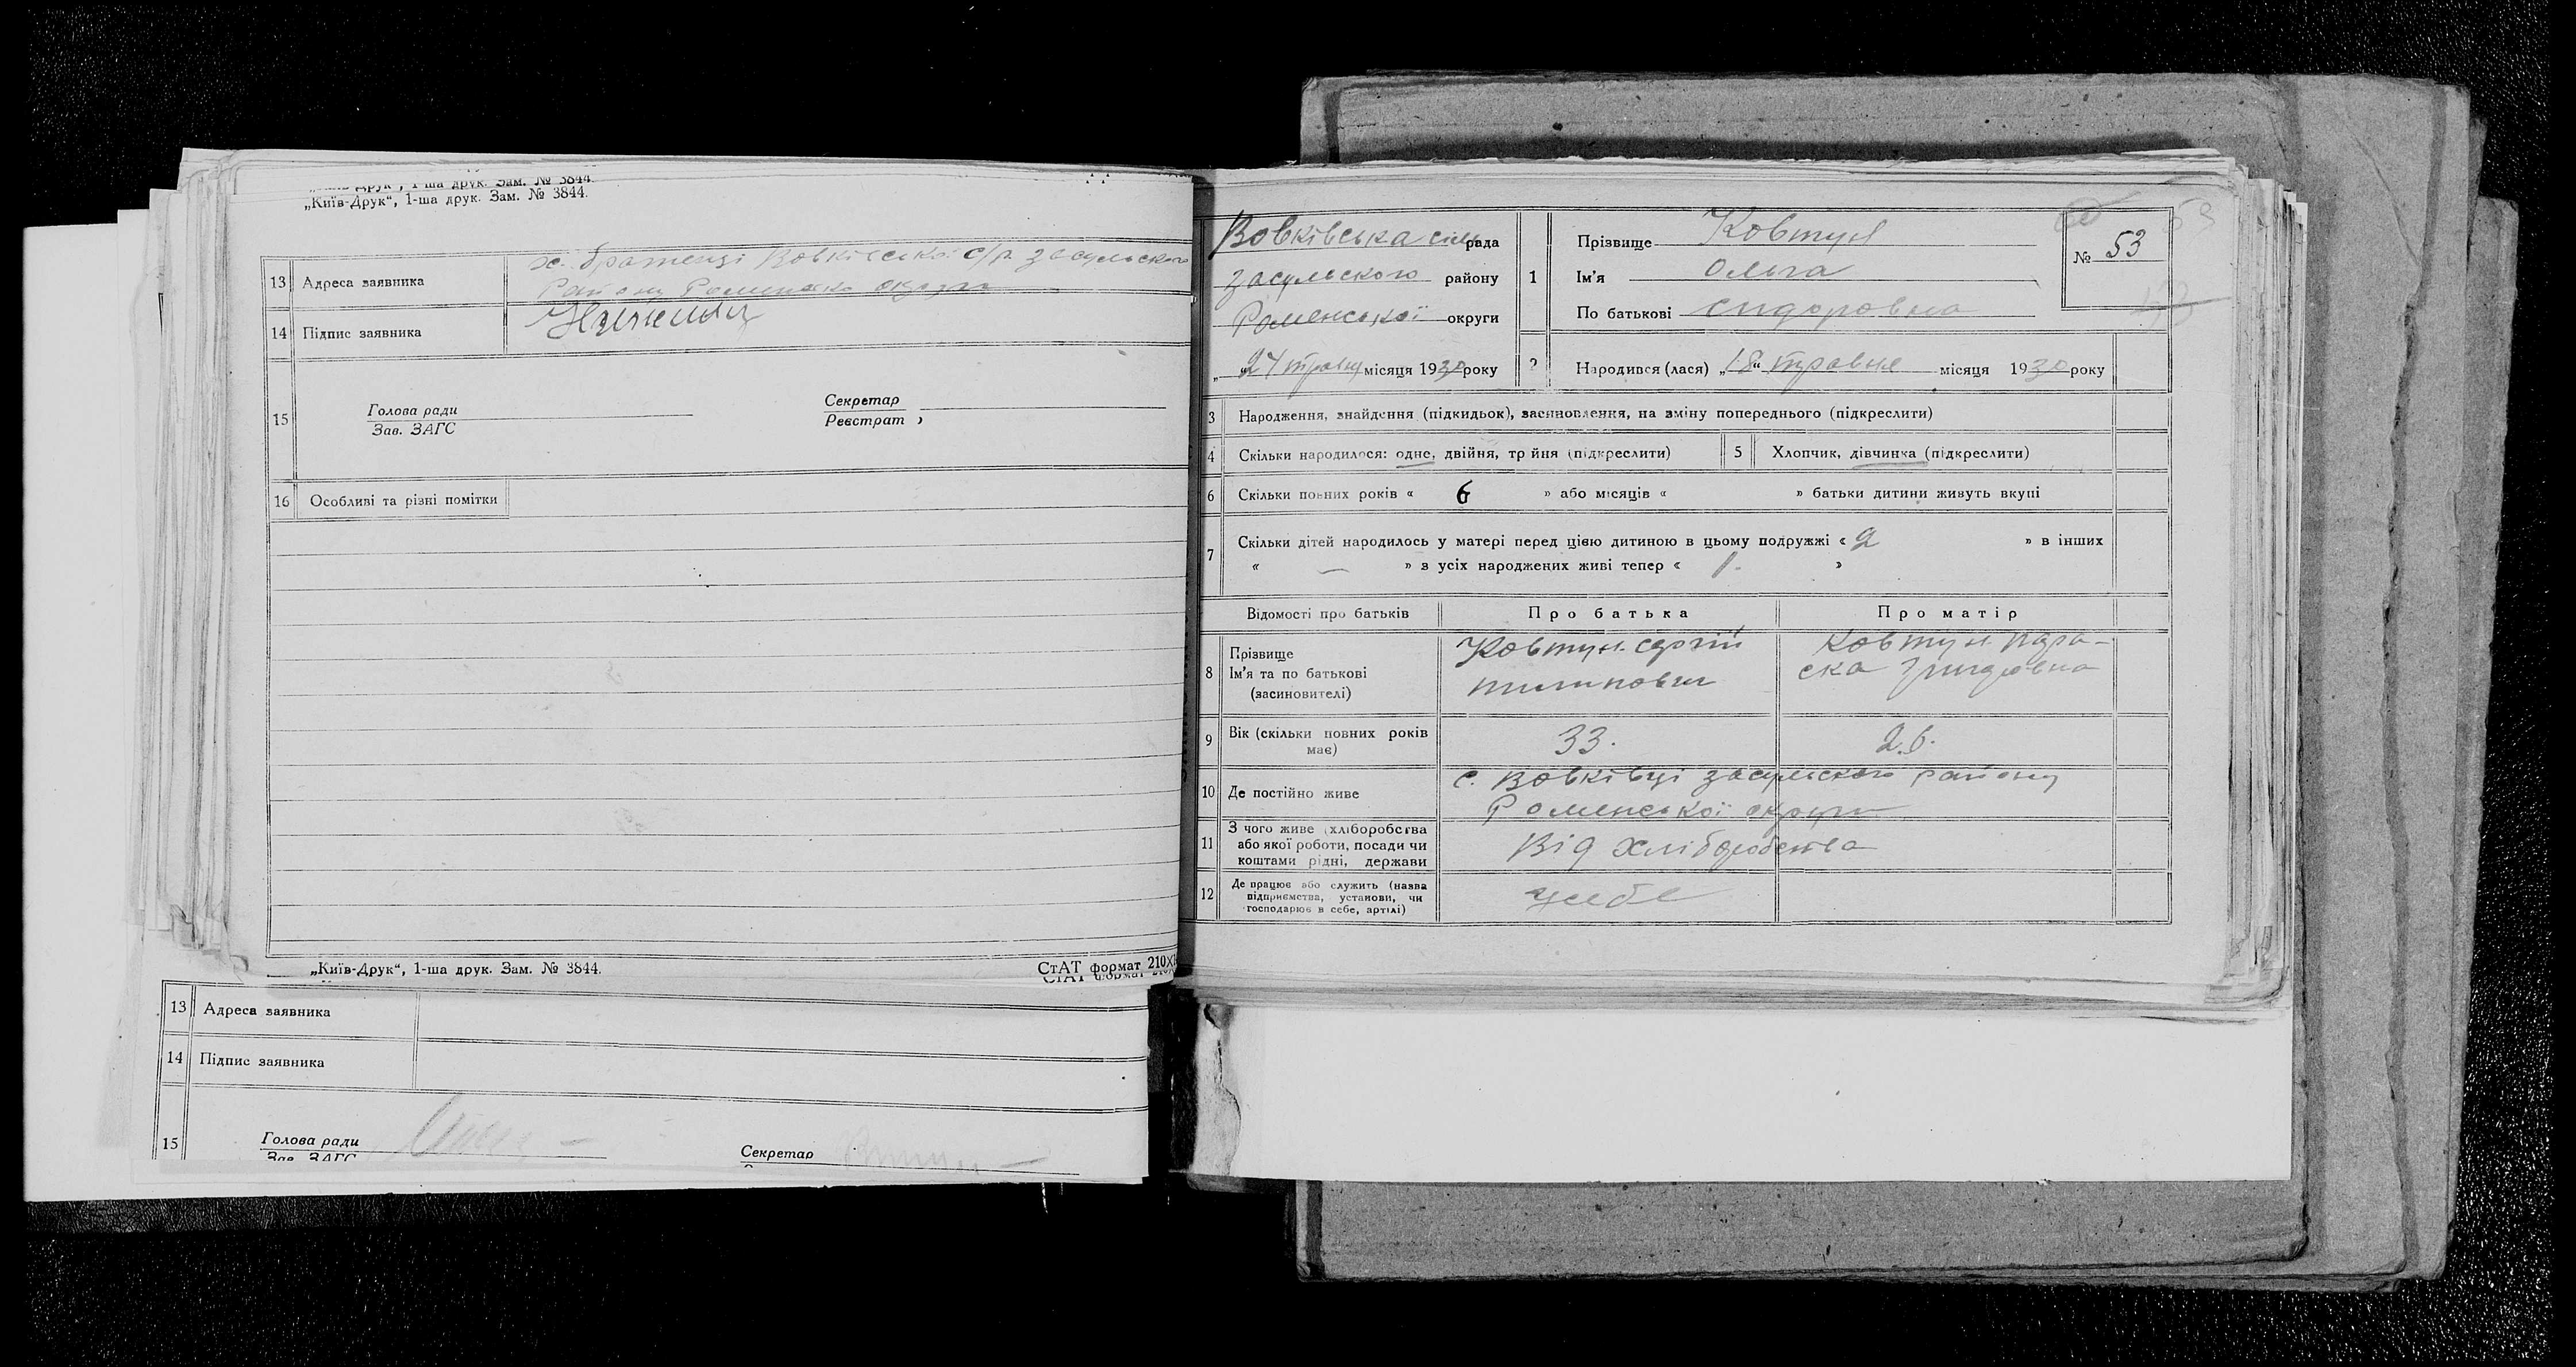 „Київ-Друк“, 1-ша друк. Зам. № 3844.
„Київ-Друк“, 1-ша друк. Зам. № 3844.
13 Адреса заявника
х. Братенці Вовківської с/р. Засульского
Району Роменської округи
14 Підпис заявника
15 Голова ради
Зав. ЗАГС
Секретар
Реєстрат
16 Особливі та різні помітки
„Київ-Друк“, 1-ша друк. Зам. № 3844.
СтАТ формат 210Х
13 Адреса заявника
14 Підпис заявника
15 Голова ради
Зав. ЗАГС
Секретар
Вовківська сіль рада
Засульського району
Роменської округи
„24 травн місяця 1930 року
1 Прізвище Ковтун
Ім'я Ольга
По батькові Сидоровна
№ 53
53
2 Народився (лася) „18“ травня місяця 1930 року
3 Народження, знайдення (підкидьок), засиновлення, на зміну попереднього (підкреслити)
4 Скільки народилося: одне, двійня, тр йня (підкреслити) 5 Хлопчик, дівчинка (підкреслити)
6 Скільки повних років « 6 » або місяців « » батьки дитини живуть вкупі
7 Скільки дітей народилось у матері перед цією дитиною в цьому подружжі « 2 » в інших
« — » з усіх народжених живі тепер « 1. »
Відомості про батьків Про батька Про матір
8 Прізвище
Ім'я та по батькові
(засиновителі)
Ковтун
пилипович
Ковтун пара-
ска Григоровна
9 Вік (скільки повних років
має)
33. 26.
10 Де постійно живе
с. Вовківці Засульского району
Роменської округи
11 З чого живе (хліборобства
або якої роботи, посади чи
коштами рідні, держави
Від хліборобства
12 Де працює або служить (назва
підприємства, установи, чи
господарює в себе, артілі)
усебе